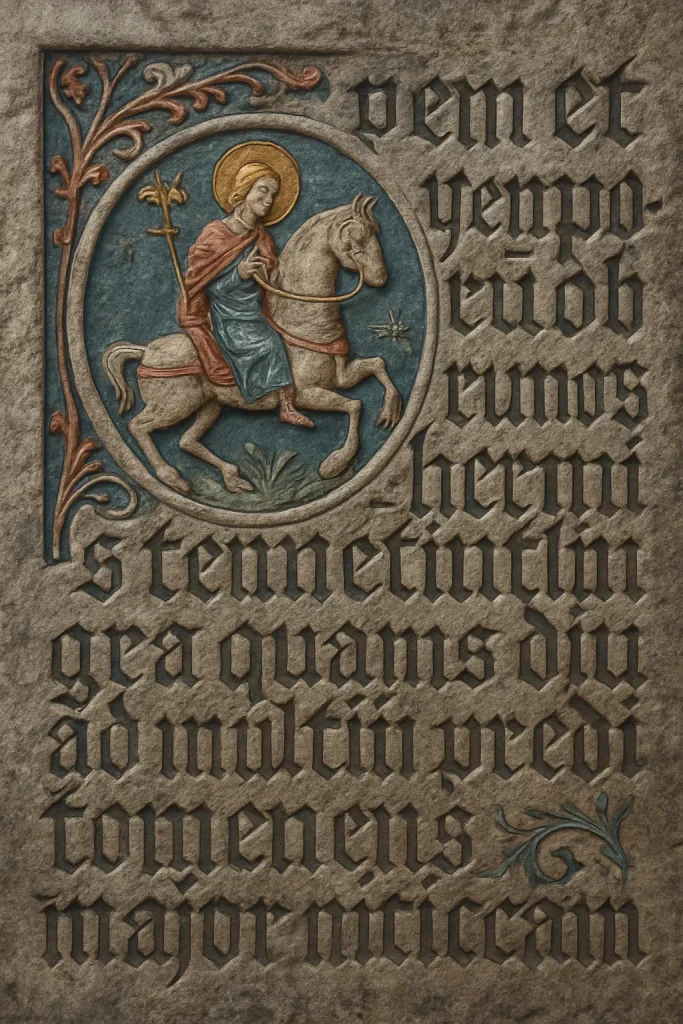 pem et
yenpo-
rūob
runos
hermi
s tennetintlin
gra quams diu
ad multiii predi
tomenens
major miticcam